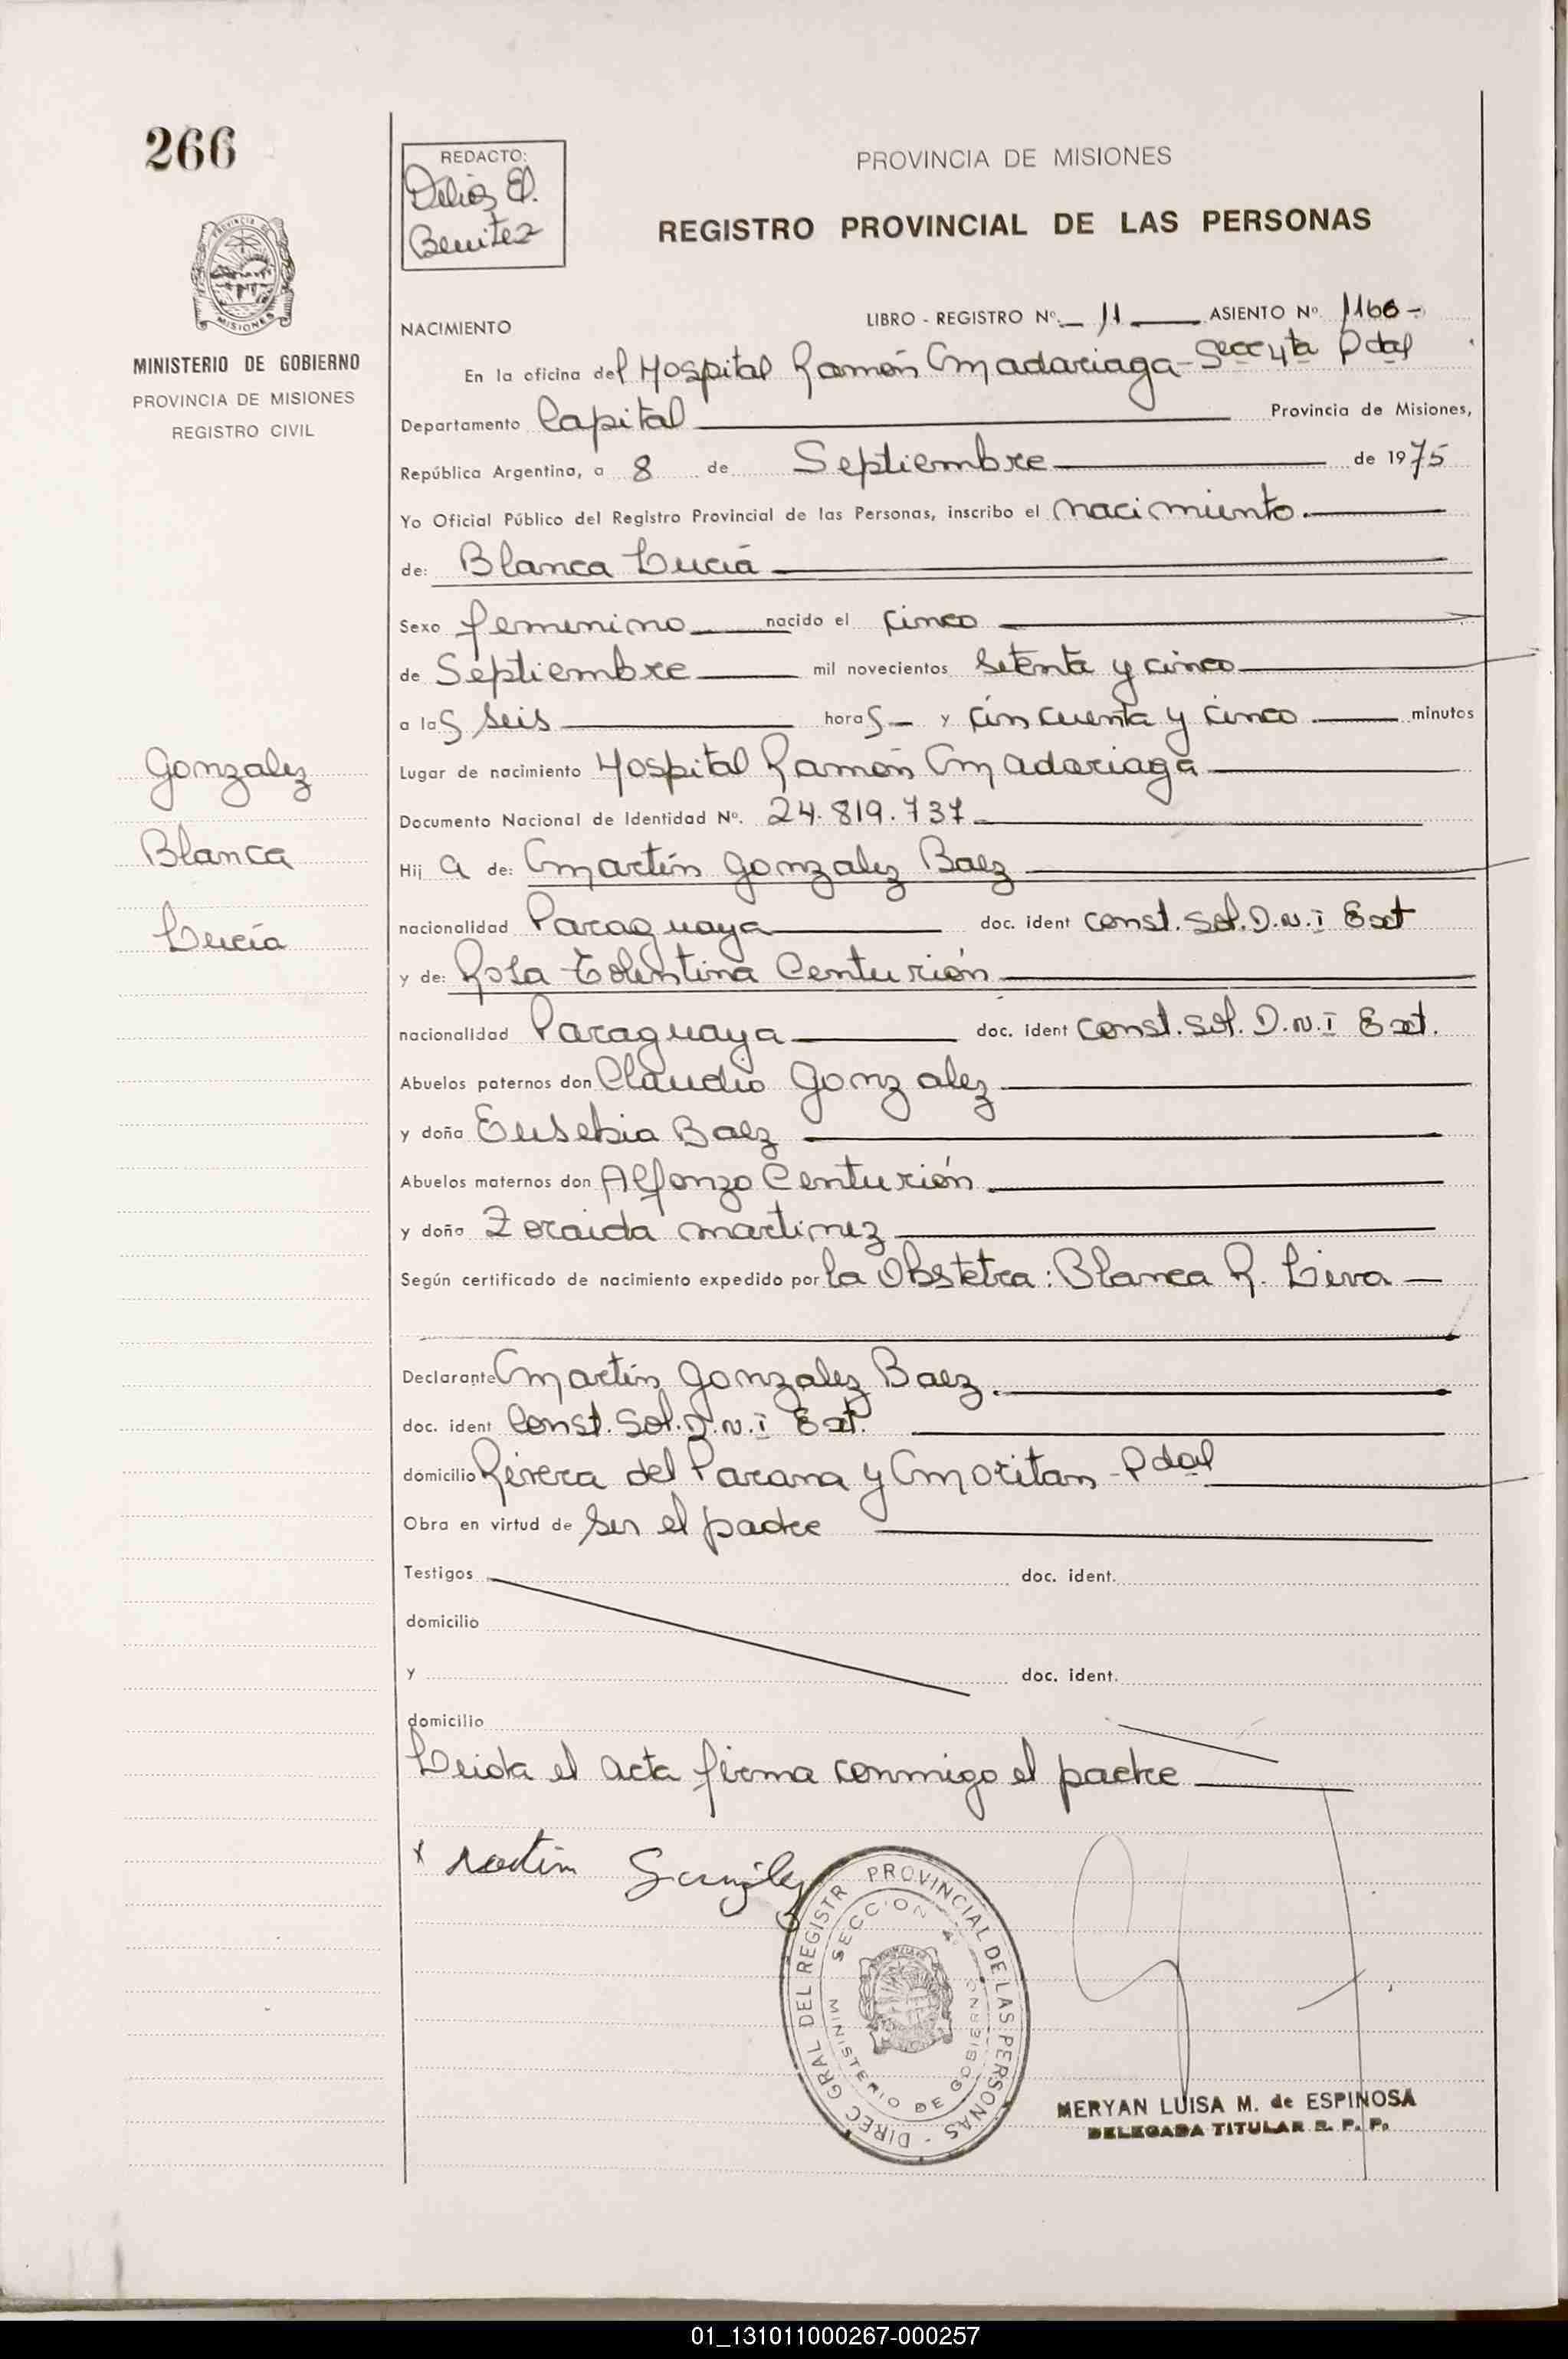 266
REDACTO:
Benitez
PROVINCIA DE MISIONES
REGISTRO PROVINCIAL DE LAS PERSONAS
PROVINCIA DE
MISIONES
MINISTERIO DE GOBIERNO
PROVINCIA DE MISIONES
REGISTRO CIVIL
NACIMIENTO
LIBRO - REGISTRO Nº. 11 ASIENTO Nº. 1166 -
En la oficina del Hospital Ramón Madariaga - Secc 4ta Pdas
Departamento Capital Provincia de Misiones,
República Argentina, a 8 de Septiembre de 1975
Yo Oficial Público del Registro Provincial de las Personas, inscribo el nacimiento.
de: Blanca Lucia
Sexo femenino nacido el cinco
de Septiembre mil novecientos setenta y cinco
a las seis horas y cincuenta y cinco minutos
Lugar de nacimiento Hospital Ramón Madariaga
Documento Nacional de Identidad Nº. 24.819.737
Hij a de: Martín Gonzalez Baez
nacionalidad Paraguaya doc. ident const. sol. D.N.I Ext
y de: Rosa Tolentina Centurión
nacionalidad Paraguaya doc. ident const. sol. D.N.I Ext.
Abuelos paternos don Claudio Gonzalez
y doña Eusebia Baez
Abuelos maternos don Alfonzo Centurión
y doña Zoraida Martinez
Según certificado de nacimiento expedido por la Obstetra: Blanca R. Leiva
Declarante Martín Gonzalez Baez.
doc. ident Const. Sol. D.N.I Ext.
domicilio Rivera del Parana y - Pdas
Obra en virtud de ser el padre
Testigos doc. ident.
domicilio
y doc. ident.
domicilio
Leida el acta firma conmigo el padre
Gonzalez
Blanca
Lucía
x Martin Gonzalez
DIREC GRAL DEL REGISTR PROVINCIAL DE LAS PERSONAS -
SECCION 4ª
MINISTERIO DE GOBIERNO
MERYAN LUISA M. de ESPINOSA
DELEGADA TITULAR R. P. P.
01_131011000267-000257